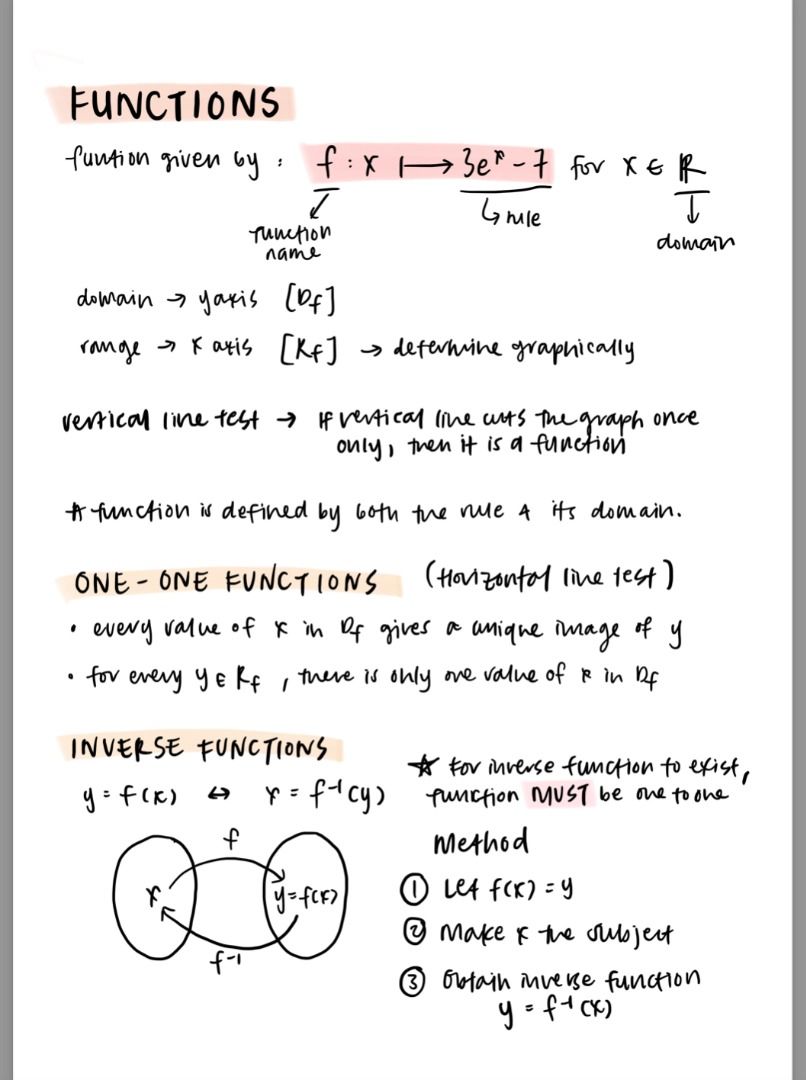 FUNCTIONS
funtion given by : f : x ↦ 3eˣ - 7 for x ∈ ℝ
function name
↳ rule
domain
domain → y axis [Df]
range → x axis [Rf] → determine graphically
vertical line test → If vertical line cuts the graph once
only, then it is a function
* function is defined by both the rule & its domain.
ONE - ONE FUNCTIONS (Horizontal line test)
• every value of x in Df gives a unique image of y
• for every y ∈ Rf , there is only one value of x in Df
INVERSE FUNCTIONS
y = f(x) ↔ x = f⁻¹(y)
☆ For inverse function to exist,
function MUST be one to one
f
x
y=f(x)
f⁻¹
Method
① Let f(x) = y
② Make x the subject
③ Obtain inverse function
y = f⁻¹(x)